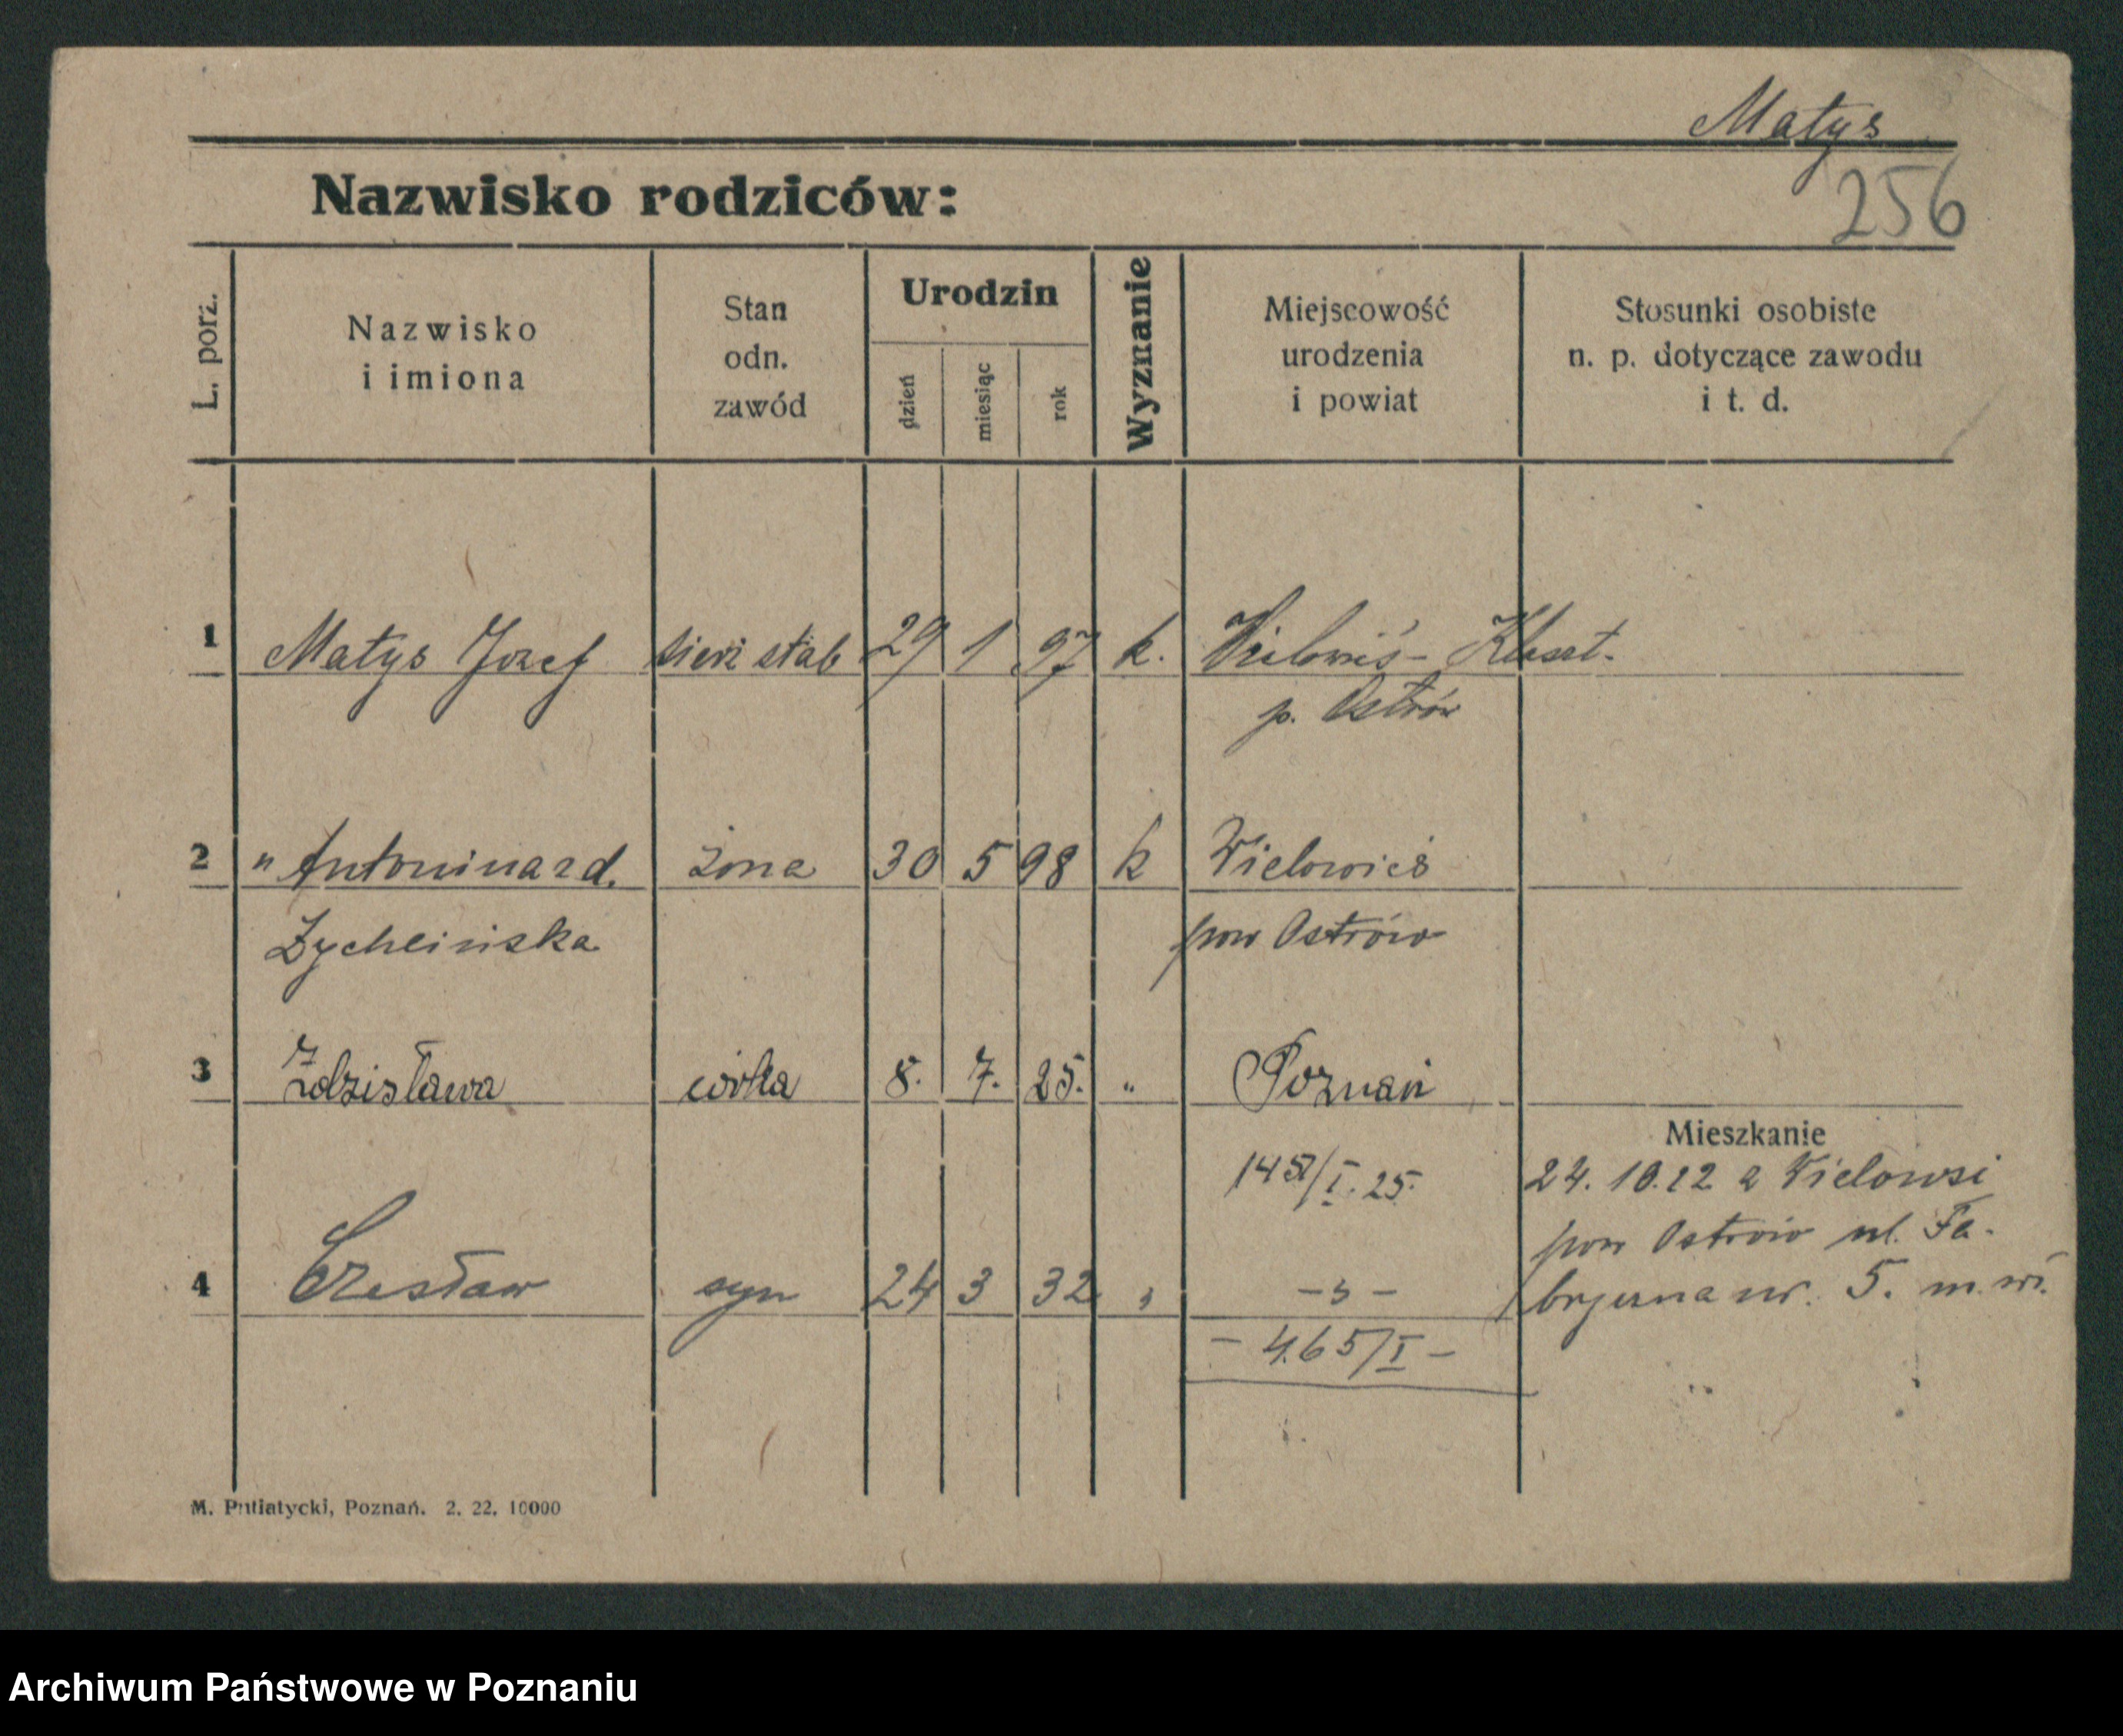 Matys
256
Nazwisko rodziców:
L. porz.
Nazwisko
i imiona
Stan
odn.
zawód
Urodzin
dzień
miesiąc
rok
Wyznanie
Miejscowość
urodzenia
i powiat
Stosunki osobiste
n. p. dotyczące zawodu
i t. d.
1 Matys Józef sierż stab 29 1 97 k. Wielowieś - Klaszt.
p. Ostrów
2 " Antonina zd. żona 30 5 98 k Wielowieś
Żychlińska pow Ostrów
3 Zdzisława córka 8. 7. 25. " Poznań
Mieszkanie
1457/I. 25. 24. 10.22 z Wielowsi
pow Ostrów ul. Fa-
4 Czesław syn 24 3 32 " - " - bryczna nr. 5. m.
- 465/I -
M. Putiatycki, Poznań. 2. 22. 10000
Archiwum Państwowe w Poznaniu